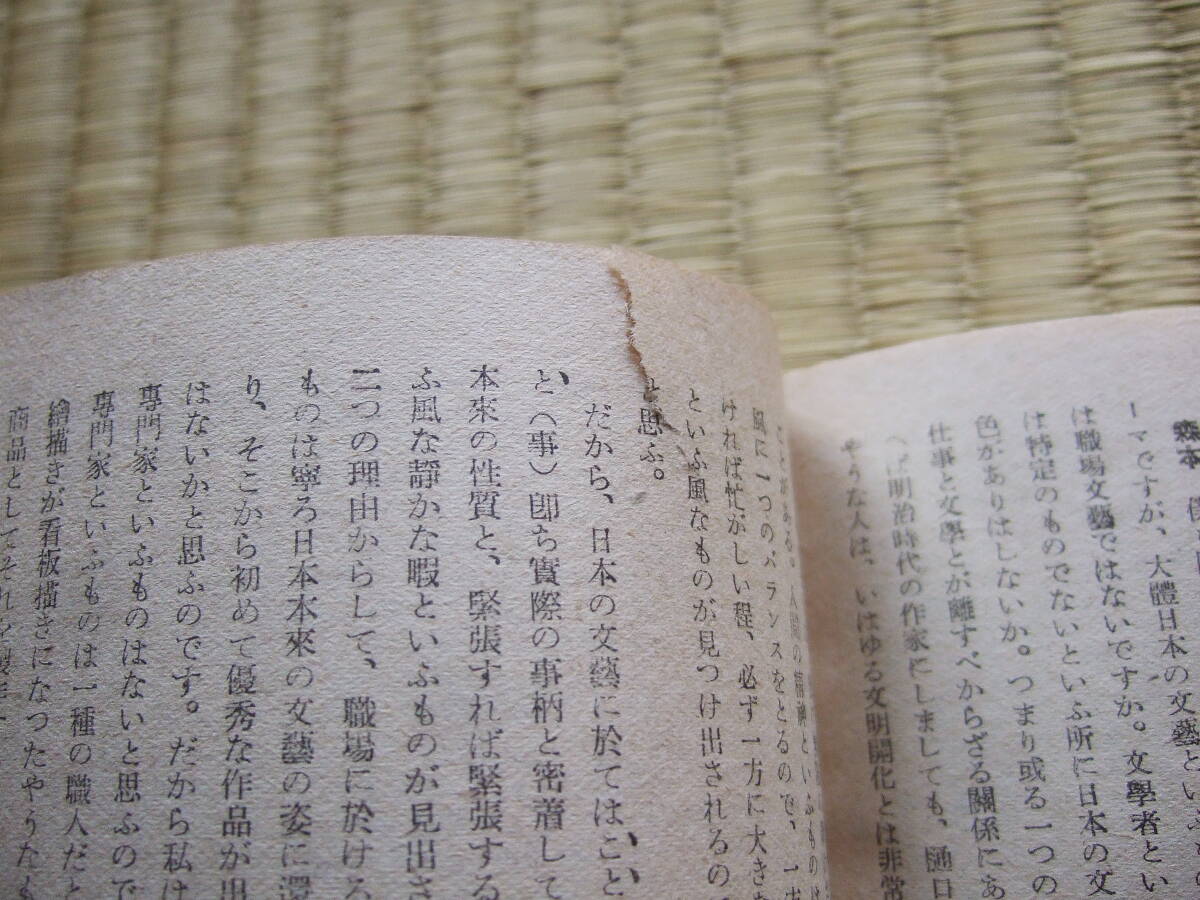 森本
ーマですが、大體日本の文藝といふ
は職場文藝ではないですか。文學者とい
は特定のものでないといふ所に日本の文
色がありはしないか。つまり或る一つの
仕事と文學とが離すべからざる關係にあ
へば明治時代の作家にしましても、樋口
やうな人は、いはゆる文明開化とは非常
ことがある。人間の精神といふものは
風に一つのバランスをとるので、一方
ければ忙がしい程、必ず一方に大きな
といふ風なものが見つけ出されるの
と思ふ。
だから、日本の文藝に於てはこと
と（事）卽ち實際の事柄と密着して
本來の性質と、緊張すれば緊張する
ふ風な靜かな暇といふものが見出さ
二つの理由からして、職場に於ける
ものは寧ろ日本本來の文藝の姿に還
り、そこから初めて優秀な作品が出
はないかと思ふのです。だから私は
專門家といふものはないと思ふので
專門家といふものは一種の職人だと
繪描きが看板描きになつたやうなも
商品としてそれを製作